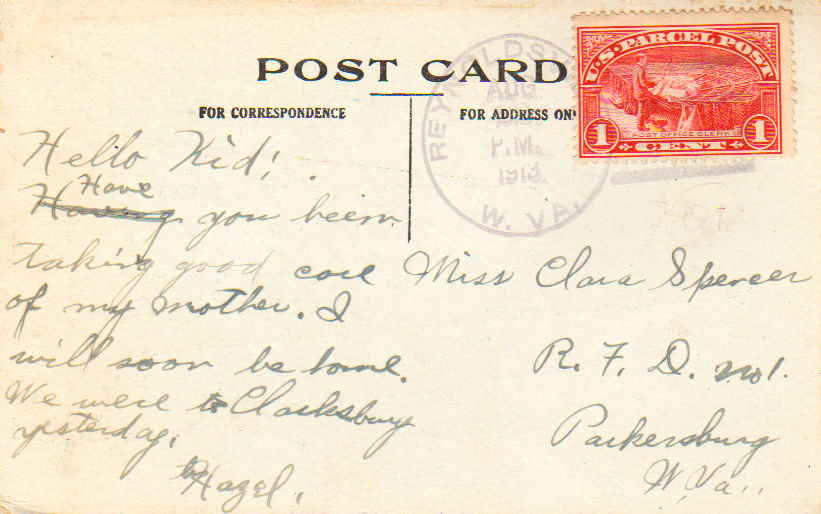 POST CARD
FOR CORRESPONDENCE
FOR ADDRESS ON
REYNOLDSV
AUG
P.M.
1913.
W. VA.
U.S. PARCEL POST
POST OFFICE CLERK
1 CENT 1
Hello Kid!
Have
Having you been
taking good care
of my mother. I
will soon be home.
We were to Clarksburg
yesterday.
Hazel.
Miss Clara Spencer
R. F. D. No 1.
Parkersburg
W. Va..